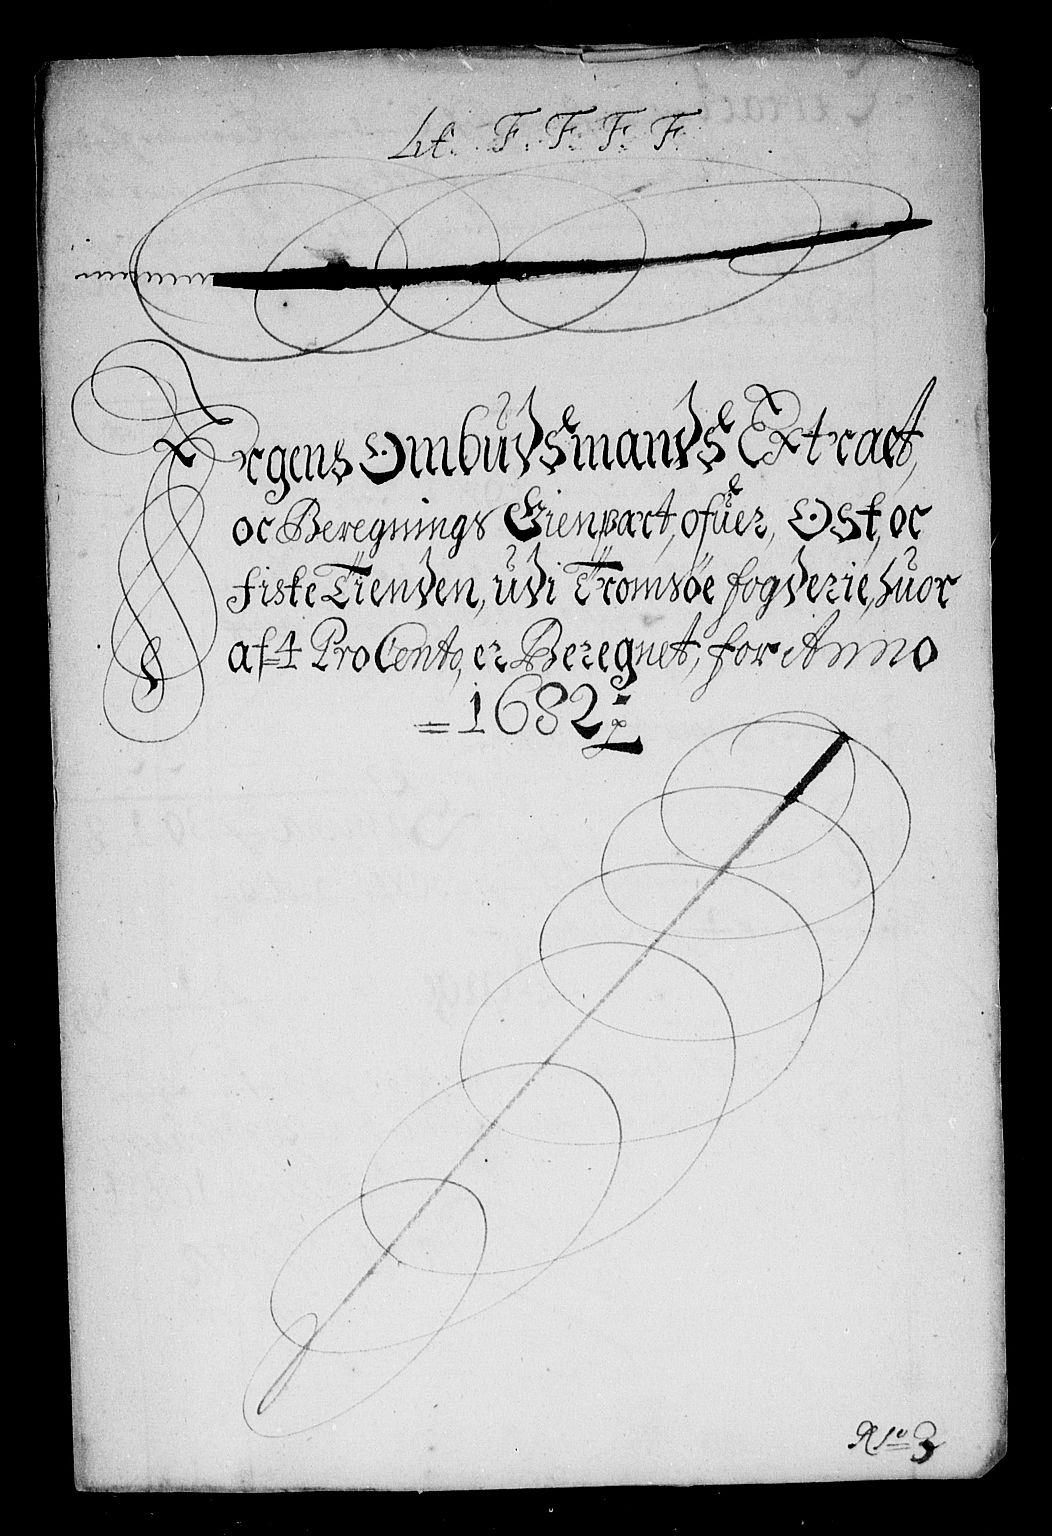 Lit. F. F. F. F.
Kirchens Ombudsmands Extract,
oc Beregnings Eienpart, ofuer, Ost, oc
fiske Tienden, udi Tromsöe fogderie, huor
af 4 ProCento, er Beregnet, for Anno
= 1682
No 3